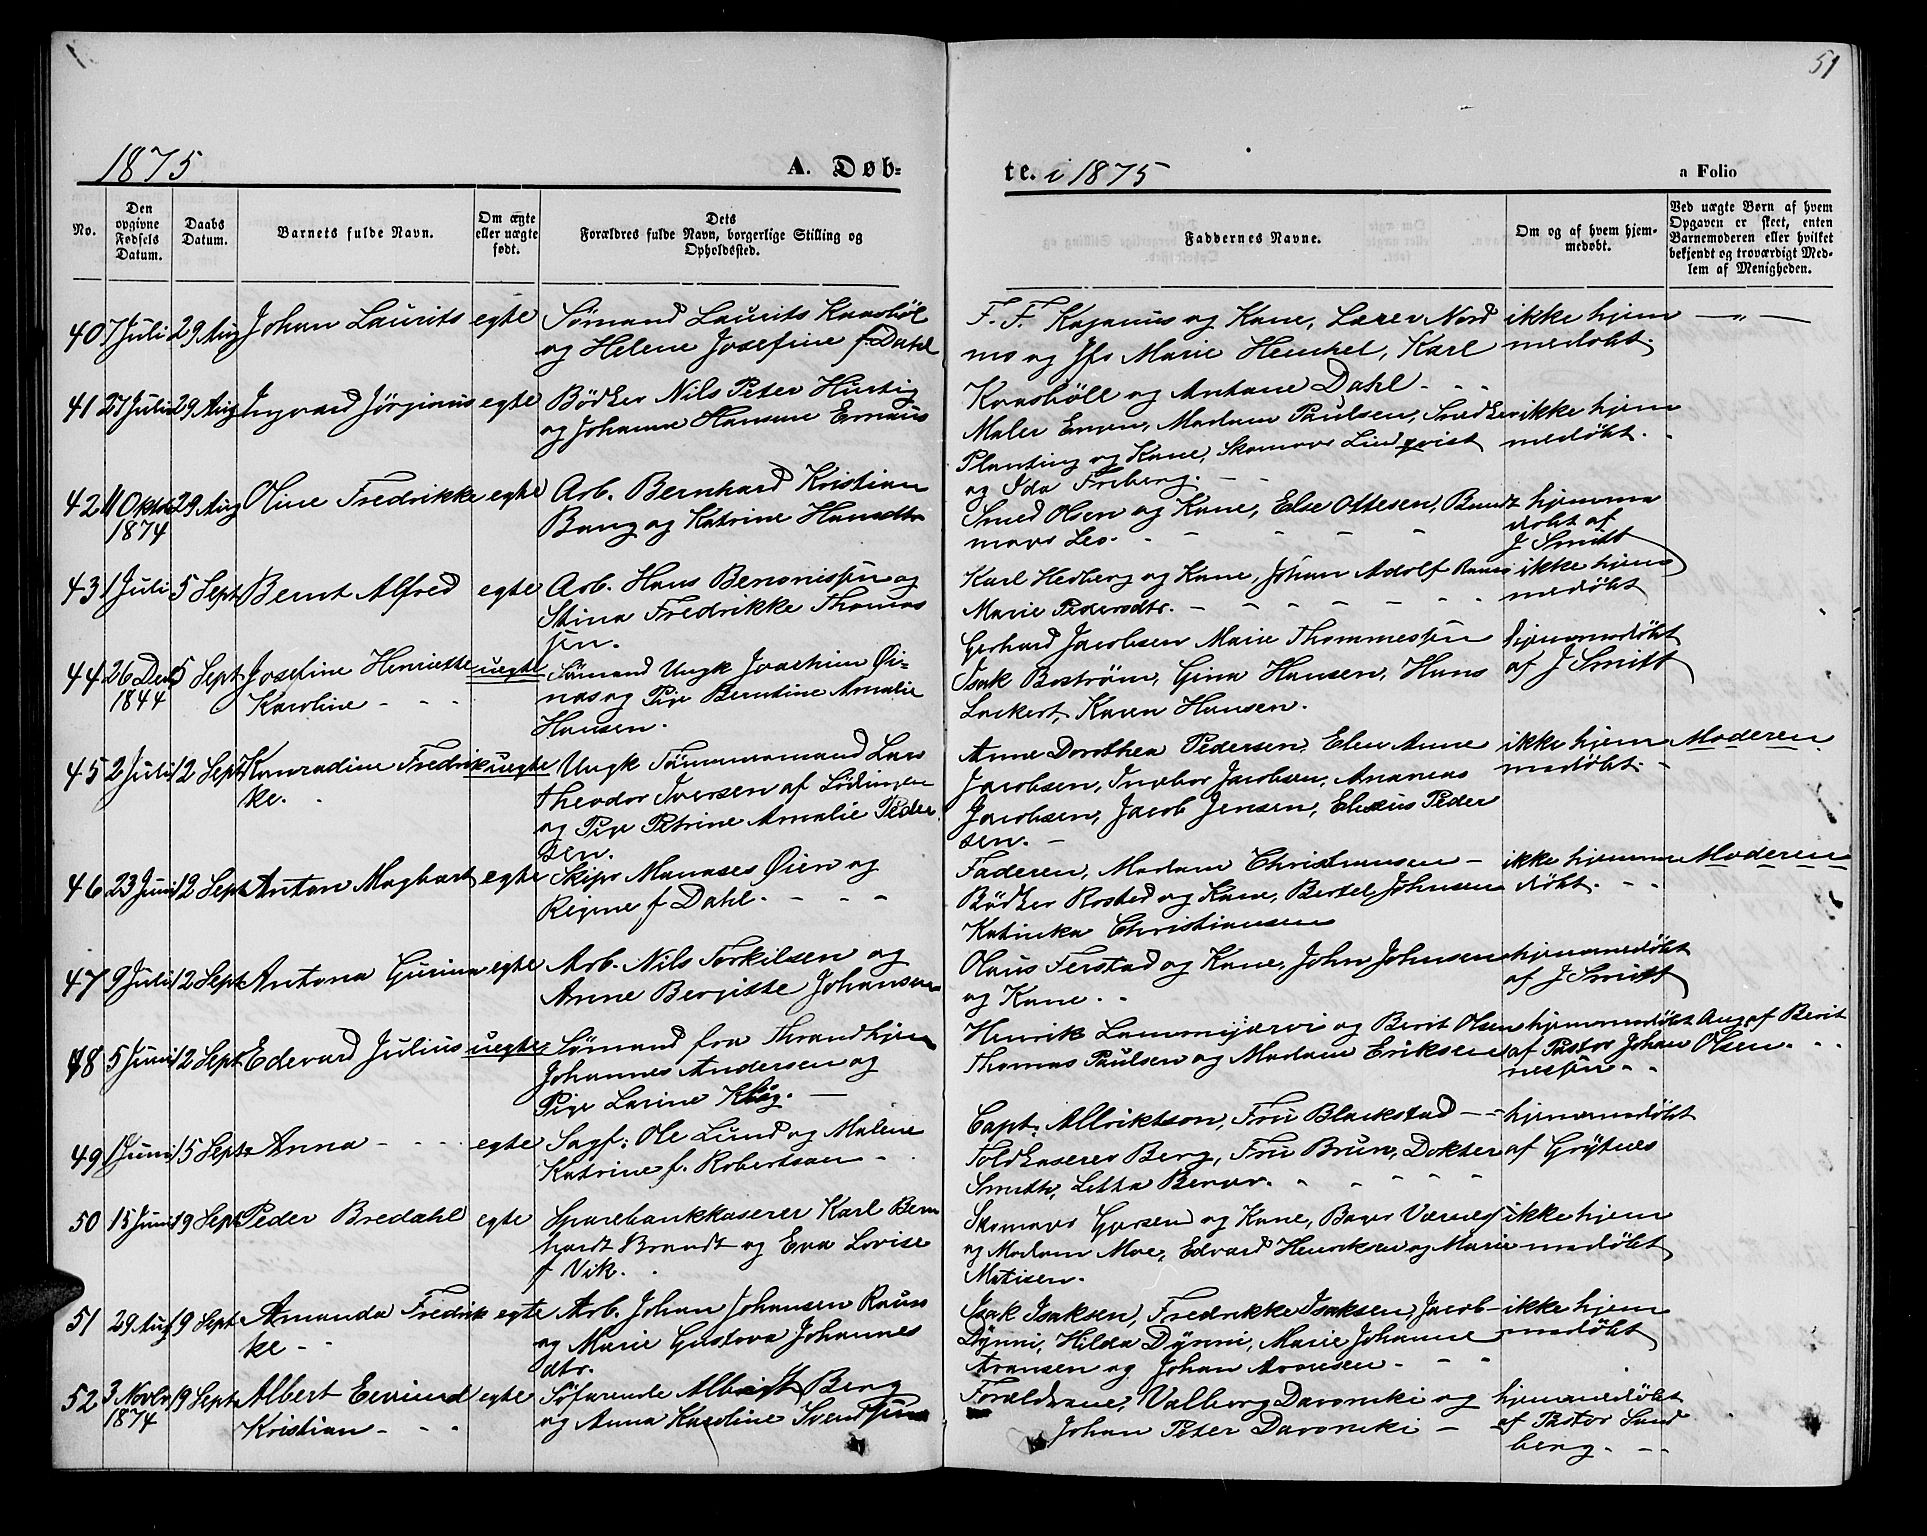 51
1875
A. Døb-
te. i 1875
a Folio
No.
Den
opgivne
Fødsels
Datum.
Daabs
Datum.
Barnets fulde Navn.
Om ægte
eller uægte
født.
Dets
Forældres fulde Navn, borgerlige Stilling og
Opholdssted.
Faddernes Navne.
Om og af hvem hjem-
medøbt.
Ved uægte Børn af hvem
Opgaven er skeet, enten
Barnemoderen eller hvilket
bekjendt og troværdigt Med-
lem af Menigheden.
40 7 Juli 29 Aug Johan Laurits egte Sømand Laurits Kraabøl
og Helene Josefine f Dahl
F. F. Kajanus og Kone, Lærer Nord
mo og Jfr Marie Henckel, Karl
Kraaböll og Antane Dahl - - -
ikke hjem
medøbt.
41 27 Juli 29 Aug Ingvard Jørginus egte Bødker Nils Peter Hurtig
og Johanne Hansine Ernaus
Maler Enven, Madam Paulsen, Snedker
Planting og Kone, Skomager Lindqvist
og Ida Friberg. - -
ikke hjem
medøbt.
42 11 Oktbr 29 Aug Oline Fredrikke egte Arb. Bernhard Kristian
1874 Bang og Katrine Hansdtr
Smed Olsen og Kone, Else Ottesen, Bundt
mager Leo. - - - -
hjemme
døbt af
J Smitt
43 1 Juli 5 Sept Bernt Alfred egte Arb. Hans Benonissen og
Stina Fredrikke Thomas
sen.
Karl Hedberg og Kone, Johan Adolf Raus
Marie Pedersdtr. - - - -
ikke hjem
medøbt
44 26 Decb 5 Sept Josefine Henriette uegte Sømand Ungk Joachim Øi-
1844 Karoline - - - nas og Pige Berntine Amalie
Hansen.
Gerhard Jacobsen Marie Thommessen
Isak Boström, Gina Hansen, Hans
Lockert, Karen Hansen.
hjemmedøbt
af J Smitt
45 2 Juli 12 Sept Konradine Fredrik uegte Ungk Tømmermand Lars
ke. Theodor Iversen af Lödingen
og Pige Petrine Amalie Peder
sen.
Anne Dorothea Pedersen, Elen Anne
Jacobsen, Ingebor Jacobsen, Ananias
Jacobsen, Jacob Jensen, Elexius Peder
sen. -
ikke hjem
medøbt. -
Moderen
46 23 Juni 12 Sept Anton Maghart egte Skipr Manases Øien og
Regine f Dahl. - - -
Faderen, Madam Christiansen -
Bødker Rosted og Kone, Bertel Johnsen
Katinka Christiansen
ikke hjemme
døbt. - -
Moderen
47 9 Juli 12 Sept Antona Gurina egte Arb. Nils Torkilsen og
Anne Bergitte Johansen
Olaus Ferstad og Kone, John Johnsen
og Kone. -
hjemmedøbt
af J Smitt
48 5 Juni 12 Sept Edevard Julius uegte Sømand fra Thrandhjem
Johannes Andersen og
Pige Larine Krog. -
Henrik Lammijærvi og Berit Olsen
Thomas Paulsen og Madam Eriksen
hjemmedøbt
af Pastor Johan
nessen - -
Ang af Berit
Olsen. - -
49 1 Juni 15 Sept Anna - - - egte Sagf: Ole Lund og Malene
Katrine f. Robertsøn - -
Capt. Albriktson, Fru Blackstad - -
Toldkaserer Berg, Fru Brun, Dokter
Smith, Letta Berner. - - - -
hjemmedøbt
af Grytnes
50 15 Juni 19 Sept Peder Bredahl egte Sparebankkaserer Karl Bern
hardt Brandt og Eva Lovise
f Vik.
Skomager Gjersen og Kone, Bager Værnes
og Madam Moe, Edvard Henriksen og Marie
Matisen.
ikke hjem
medøbt
51 29 Aug 19 Sept Amanda Fredrik egte Arb. Johan Johansen Raus
ke - og Marie Gustava Johannes
dtr.
Isak Isaksen, Fredrikke Isaksen, Jacob
Dynni, Hilda Dynni, Marie Johanne
Aronsen og Johan Aronsen - - -
ikke hjem
medøbt
52 3 Novbr 19 Sept Albert Eevind egte Søfarende Albrigt Berg
1874 Kristian - - - og Anna Karoline Svendsen
Forældrene, Valborg Davonski og
Johan Peter Davonski -
hjemmedøbt
af Pastor Sand
berg. - -